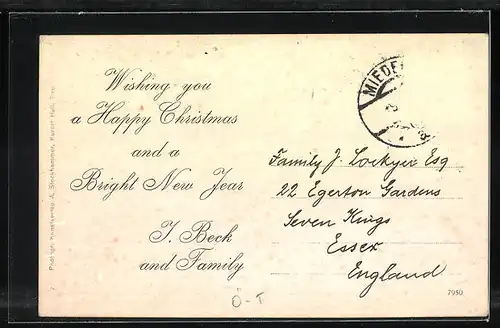 Wishing you
a Happy Christmas
and a
Bright New Year
J. Beck
and Family
MIEDE
Family J. Lockyer Esq
22 Egerton Gardens
Seven Kings
Essex
England
7950
Ö-T